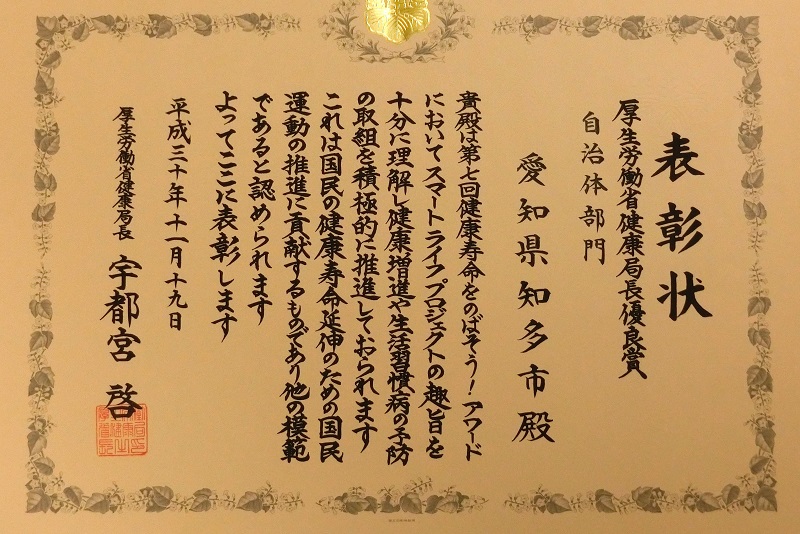 表彰状
厚生労働省健康局長優良賞
自治体部門
愛知県知多市殿
貴殿は第七回健康寿命をのばそう！アワード
においてスマートライフプロジェクトの趣旨を
十分に理解し健康増進や生活習慣病の予防
の取組を積極的に推進しておられます
これは国民の健康寿命延伸のための国民
運動の推進に貢献するものであり他の模範
であると認められます
よってここに表彰します
平成三十年十一月十九日
厚生労働省健康局長 宇都宮 啓